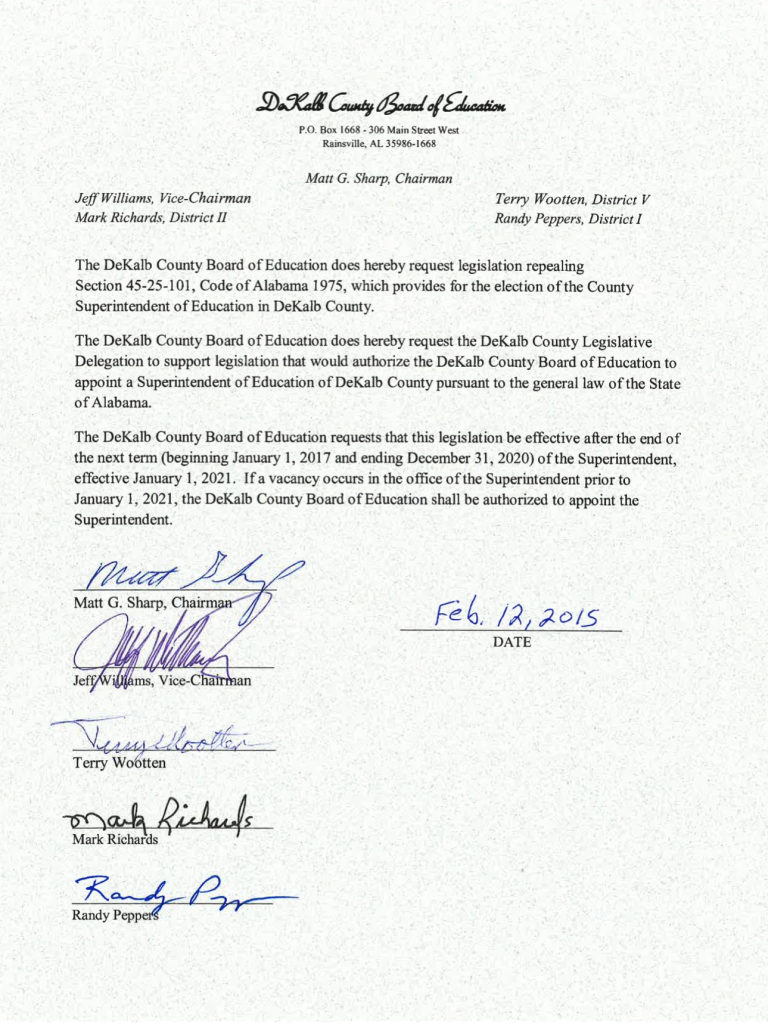 DeKalb County Board of Education
P.O. Box 1668 - 306 Main Street West
Rainsville, AL 35986-1668
Matt G. Sharp, Chairman
Jeff Williams, Vice-Chairman
Mark Richards, District II
Terry Wootten, District V
Randy Peppers, District I
The DeKalb County Board of Education does hereby request legislation repealing
Section 45-25-101, Code of Alabama 1975, which provides for the election of the County
Superintendent of Education in DeKalb County.
The DeKalb County Board of Education does hereby request the DeKalb County Legislative
Delegation to support legislation that would authorize the DeKalb County Board of Education to
appoint a Superintendent of Education of DeKalb County pursuant to the general law of the State
of Alabama.
The DeKalb County Board of Education requests that this legislation be effective after the end of
the next term (beginning January 1, 2017 and ending December 31, 2020) of the Superintendent,
effective January 1, 2021. If a vacancy occurs in the office of the Superintendent prior to
January 1, 2021, the DeKalb County Board of Education shall be authorized to appoint the
Superintendent.
Matt G. Sharp
Matt G. Sharp, Chairman
Feb. 12, 2015
DATE
Jeff Williams
Jeff Williams, Vice-Chairman
Terry Wootten
Terry Wootten
Mark Richards
Mark Richards
Randy Peppers
Randy Peppers